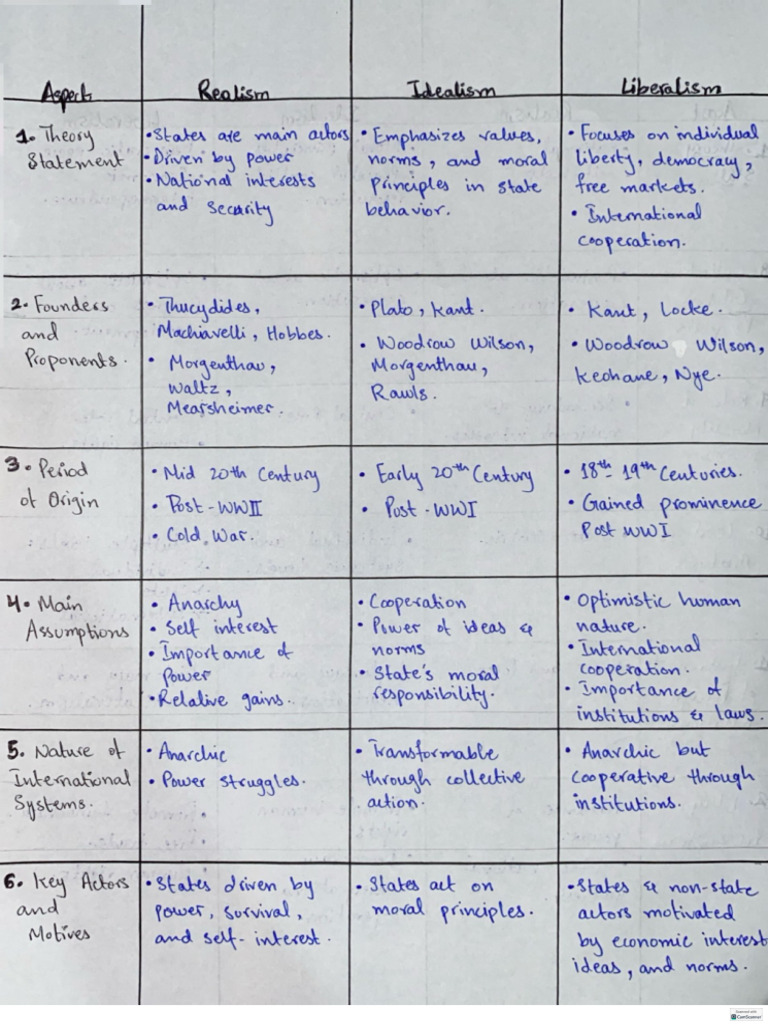 Aspect Realism Idealism Liberalism
1. Theory Statement
• States are main actors
• Driven by power
• National interests
and security
• Emphasizes values,
norms, and moral
Principles in state
behavior.
• Focuses on individual
liberty, democracy,
free markets.
• International
cooperation.
2. Founders
and
Proponents.
• Thucydides,
Machiavelli, Hobbes.
• Morgenthau,
Waltz,
Mearsheimer.
• Plato, Kant.
• Woodrow Wilson,
Morgenthau,
Rawls.
• Kant, Locke.
• Woodrow Wilson,
Keohane, Nye.
3. Period
of Origin
• Mid 20th Century
• Post-WWII
• Cold War.
• Early 20th Century
• Post-WWI
• 18th-19th Centuries.
• Gained prominence
Post WWI
4. Main
Assumptions
• Anarchy
• Self interest
• Importance of
Power
• Relative gains.
• Cooperation
• Power of ideas &
norms
• State's moral
responsibility.
• Optimistic human
nature.
• International
cooperation.
• Importance of
institutions & laws.
5. Nature of
International
Systems.
• Anarchic
• Power struggles.
• Transformable
through collective
action.
• Anarchic but
cooperative through
institutions.
6. Key Actors
and
Motives
• States driven by
power, survival,
and self-interest.
• States act on
moral principles.
• States & non-state
actors motivated
by economic interest
ideas, and norms.
Scanned with
CamScanner